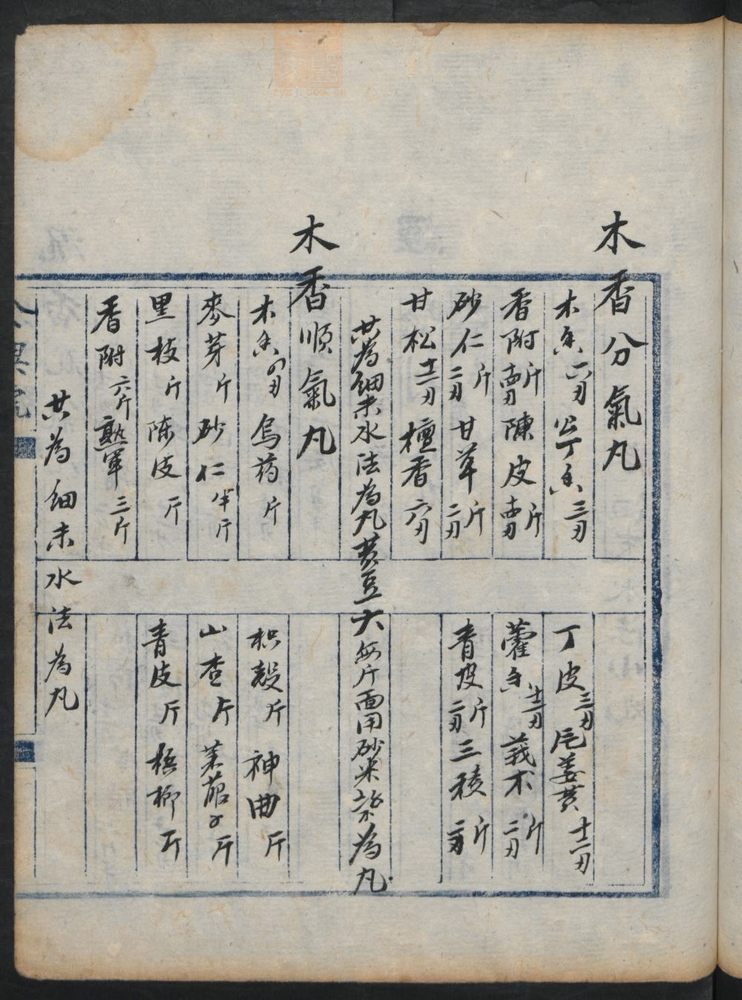 木香分氣丸
木香 六刃 公丁香 三刃 丁皮 三刃 片姜黃 十二刃
香附 斤 陳皮 斤 藿香 莪术 斤 二刃
砂仁 斤 二刃 甘草 斤 二刃 青皮 斤 三稜 斤
甘松 十二刃 檀香 六刃
共為細末水法為丸黃豆大每斤面用砂米漿為丸
木香順氣丸
木香 四刃 烏藥 斤 枳殼 斤 神曲 斤
麥芽 斤 砂仁 半斤 山查 斤 萊菔子 斤
里枝 斤 陈皮 斤 青皮 斤 槟榔 斤
香附 六斤 熟軍 三斤
共為細末水法為丸